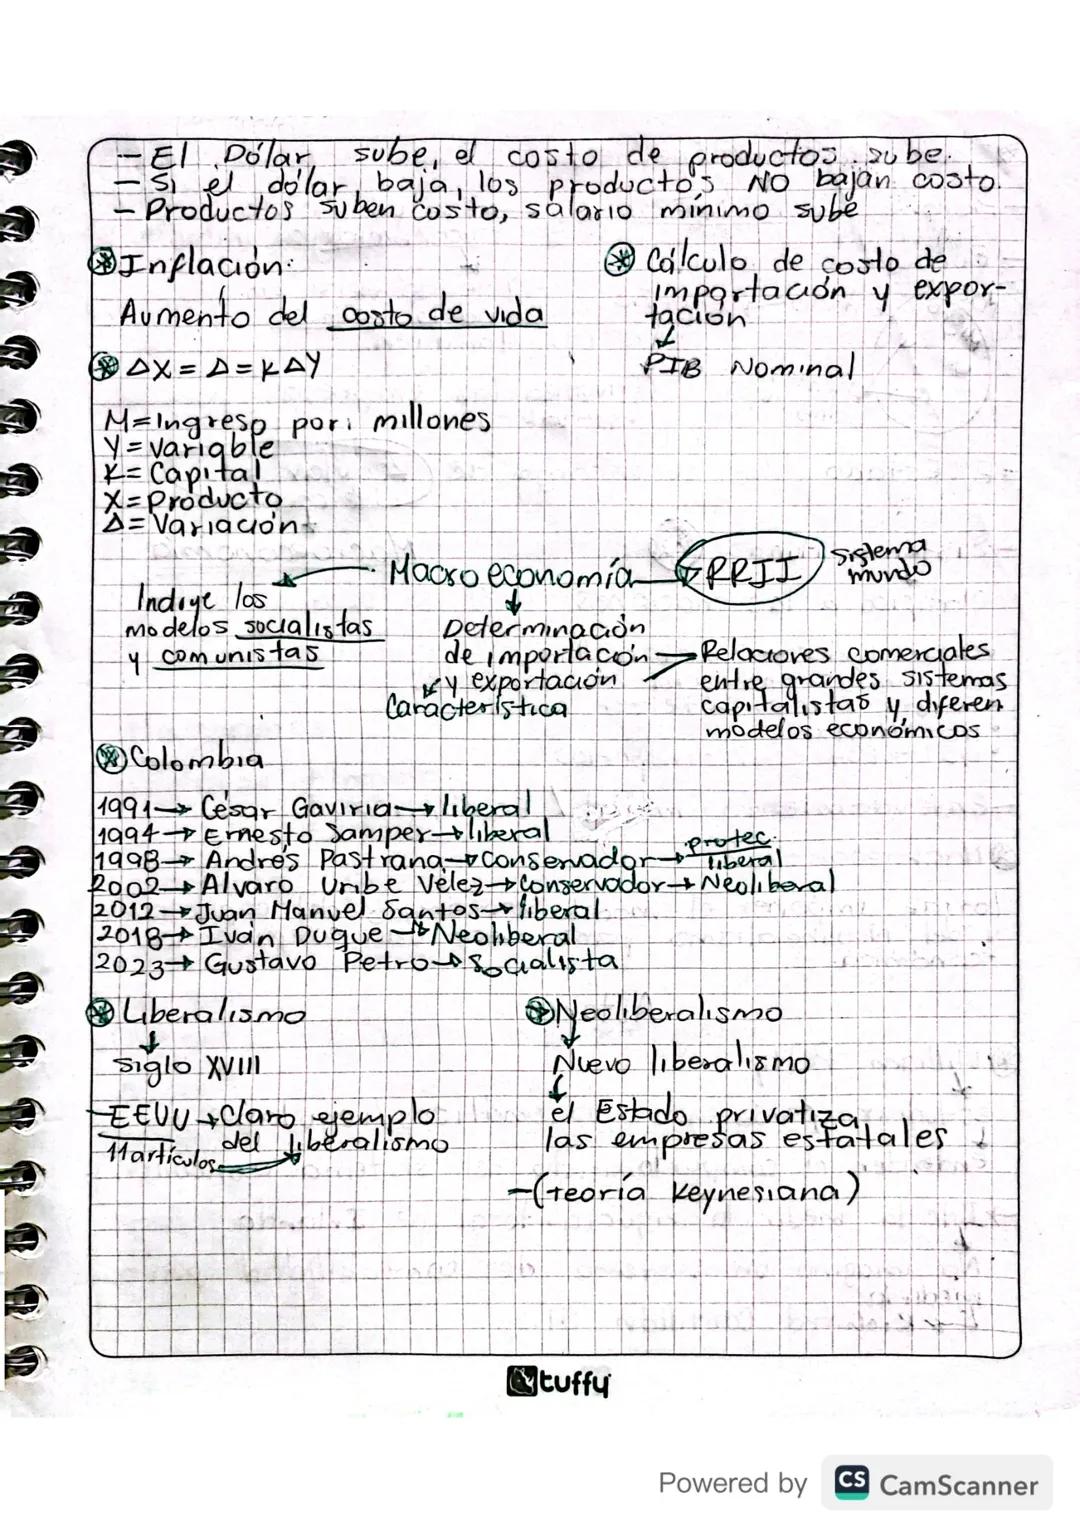 - El Dólar sube, el costo de productos sube.
- Si el dólar baja, los productos NO bajan costo.
- Productos suben costo, salario mínimo sube
Inflación:
Aumento del costo de vida
ΔX = Δ = KΔY
Cálculo de costo de
importación y expor-
tación
PIB Nominal
M = Ingreso por: millones
Y = Variable
K = Capital
X = Producto
Δ = Variación
Macroeconomía
RRII
Sistema
mundo
los
modelos socialistas
y comunistas
Determinación
de importación
y exportación
Característica
Relaciones comerciales
entre grandes sistemas
capitalistas y diferen
modelos económicos
Colombia
1991 → César Gaviria → liberal
1994 → Ernesto Samper → liberal
1998 → Andrés Pastrana → Conservador → protec. liberal
2002 → Alvaro Uribe Vélez → Conservador → Neoliberal
2012 → Juan Manuel Santos → liberal
2018 → Iván Duque → Neoliberal
2023 → Gustavo Petro → Socialista
Liberalismo
↓
Siglo XVIII
EEUU → Claro ejemplo
del liberalismo
11 artículos
Neoliberalismo
↓
Nuevo liberalismo
↓
el Estado privatiza
las empresas estatales
- (teoría Keynesiana)
tuffy
Powered by CS CamScanner